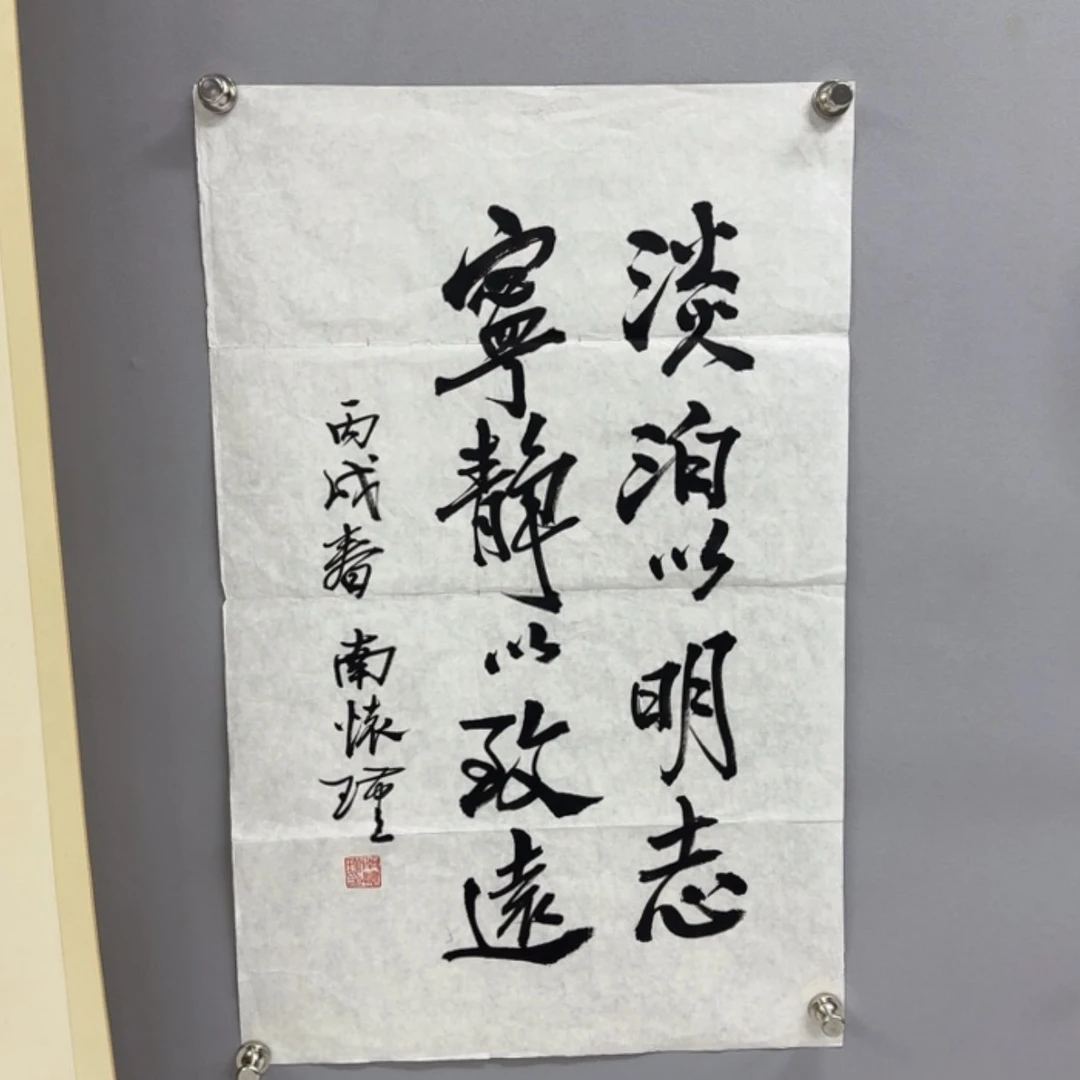 淡泊以明志
寧靜以致遠
丙戌春 南懷瑾